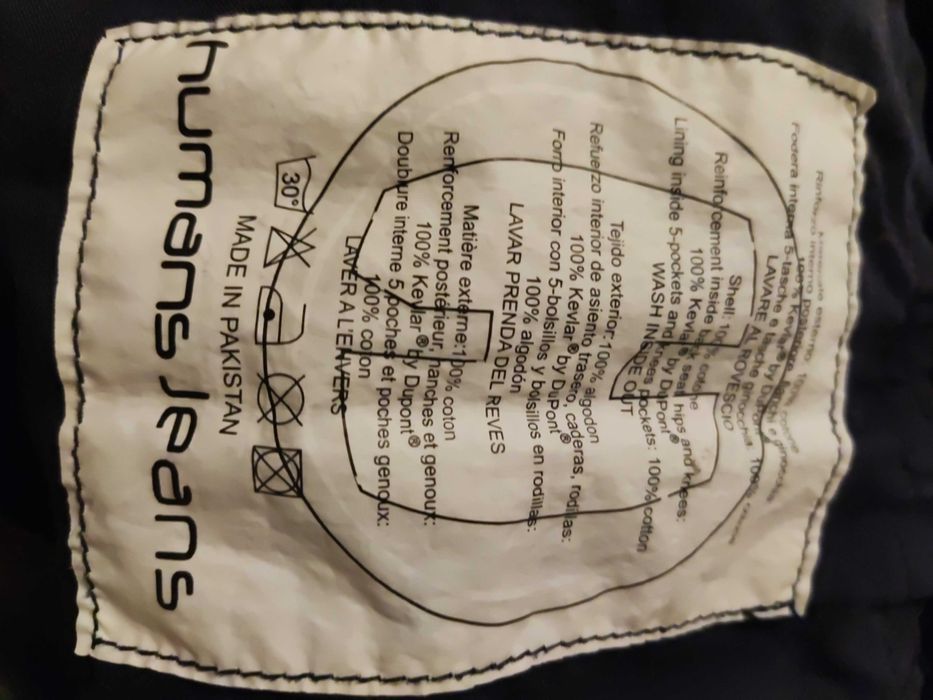 Materiale esterno: 100% cotone
Rinforzo interno posteriore,
100% Kevlar® by DuPont®
Fodera interna 5-tasche e tasche ginocchia: 100%
LAVARE AL ROVESCIO
Shell: 100% cotone
Reinforcement inside back seat hips and knees:
100% Kevlar® by DuPont®
Lining inside 5-pockets and knees pockets: 100% cotton
WASH INSIDE OUT
Tejido exterior: 100% algodon
Refuerzo interior de asiento trasero, caderas, rodillas:
100% Kevlar® by DuPont®
Forro interior con 5-bolsillos y bolsillos en rodillas:
100% algodón
LAVAR PRENDA DEL REVES
Matière externe: 100% coton
Renforcement postérieur, hanches et genoux:
100% Kevlar® by Dupont®
Doublure interne 5 poches et poches genoux:
100% coton
LAVER A L'ENVERS
30°
MADE IN PAKISTAN
humans Jeans